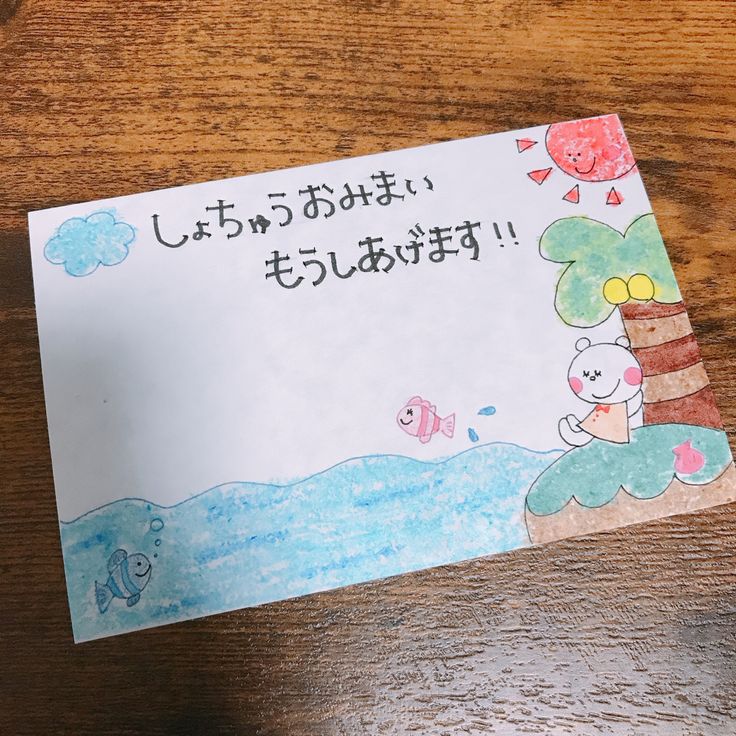 しょちゅうおみまい
もうしあげます!!